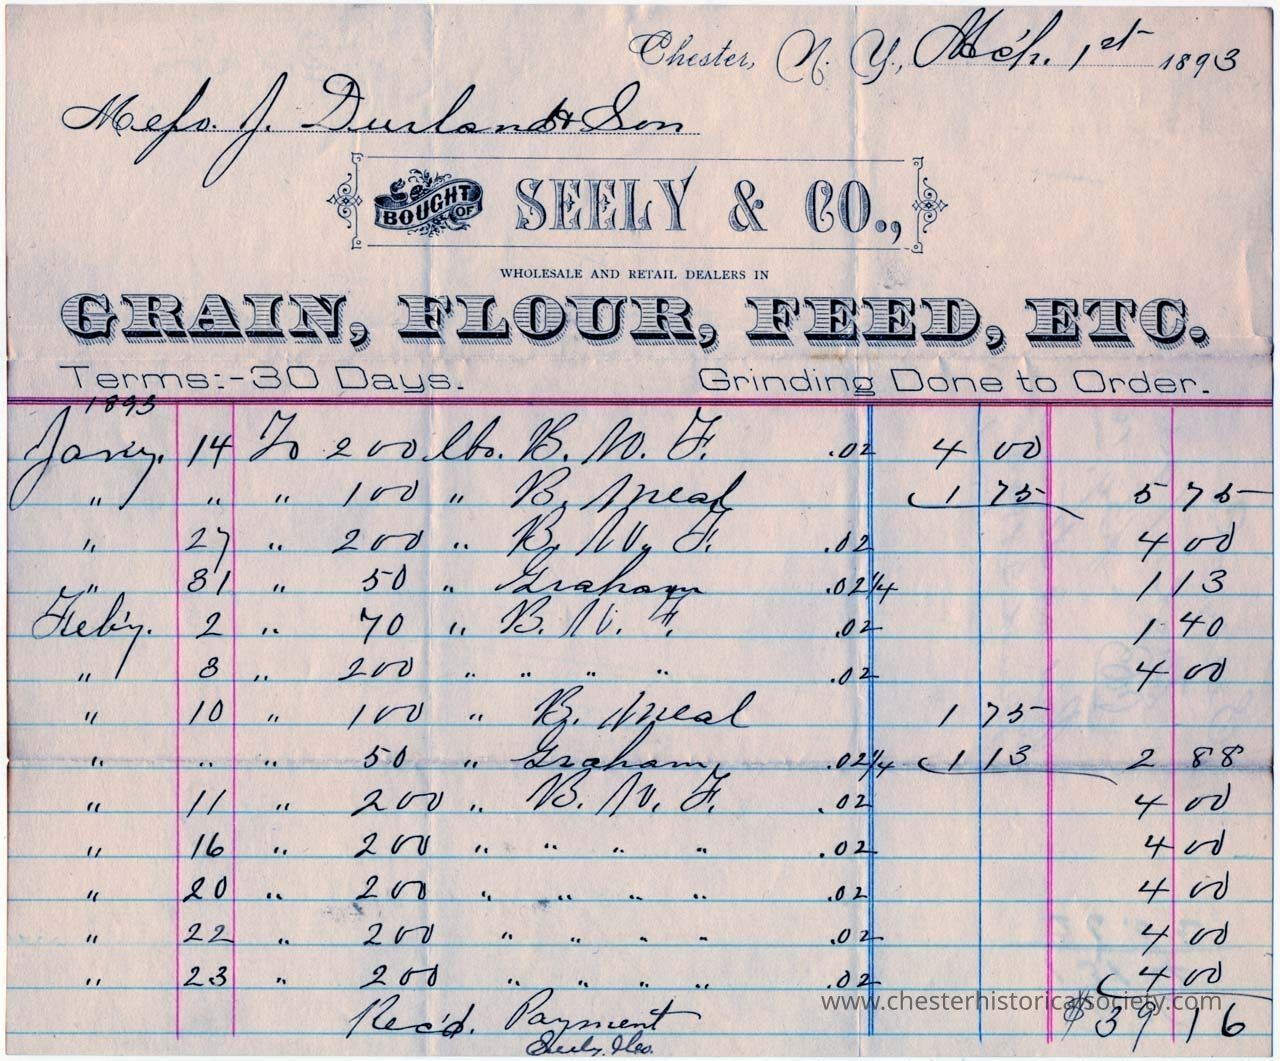 Chester, N. Y., Mch. 1st 1893
Mess. J. Durland & Son
BOUGHT OF SEELY & CO.,
WHOLESALE AND RETAIL DEALERS IN
GRAIN, FLOUR, FEED, ETC.
Terms:-30 Days. Grinding Done to Order.
1893
Jany. 14 To 200 lbs. B. W. F. .02 4 00
" " " 100 " B. Meal 1 75 5 75
" 27 " 200 " B. W. F. .02 4 00
" 31 " 50 " Graham .02 1/4 1 13
Feby. 2 " 70 " B. W. F. .02 1 40
" 8 " 200 " " " " .02 4 00
" 10 " 100 " B. Meal 1 75
" " " 50 " Graham .02 1/4 1 13 2 88
" 11 " 200 " B. W. F. .02 4 00
" 16 " 200 " " " " .02 4 00
" 20 " 200 " " " " .02 4 00
" 22 " 200 " " " " .02 4 00
" 23 " 200 " " " " .02 4 00
www.chesterhistoricalsociety.com
Rec'd. Payment $39 16
Seely &Co.